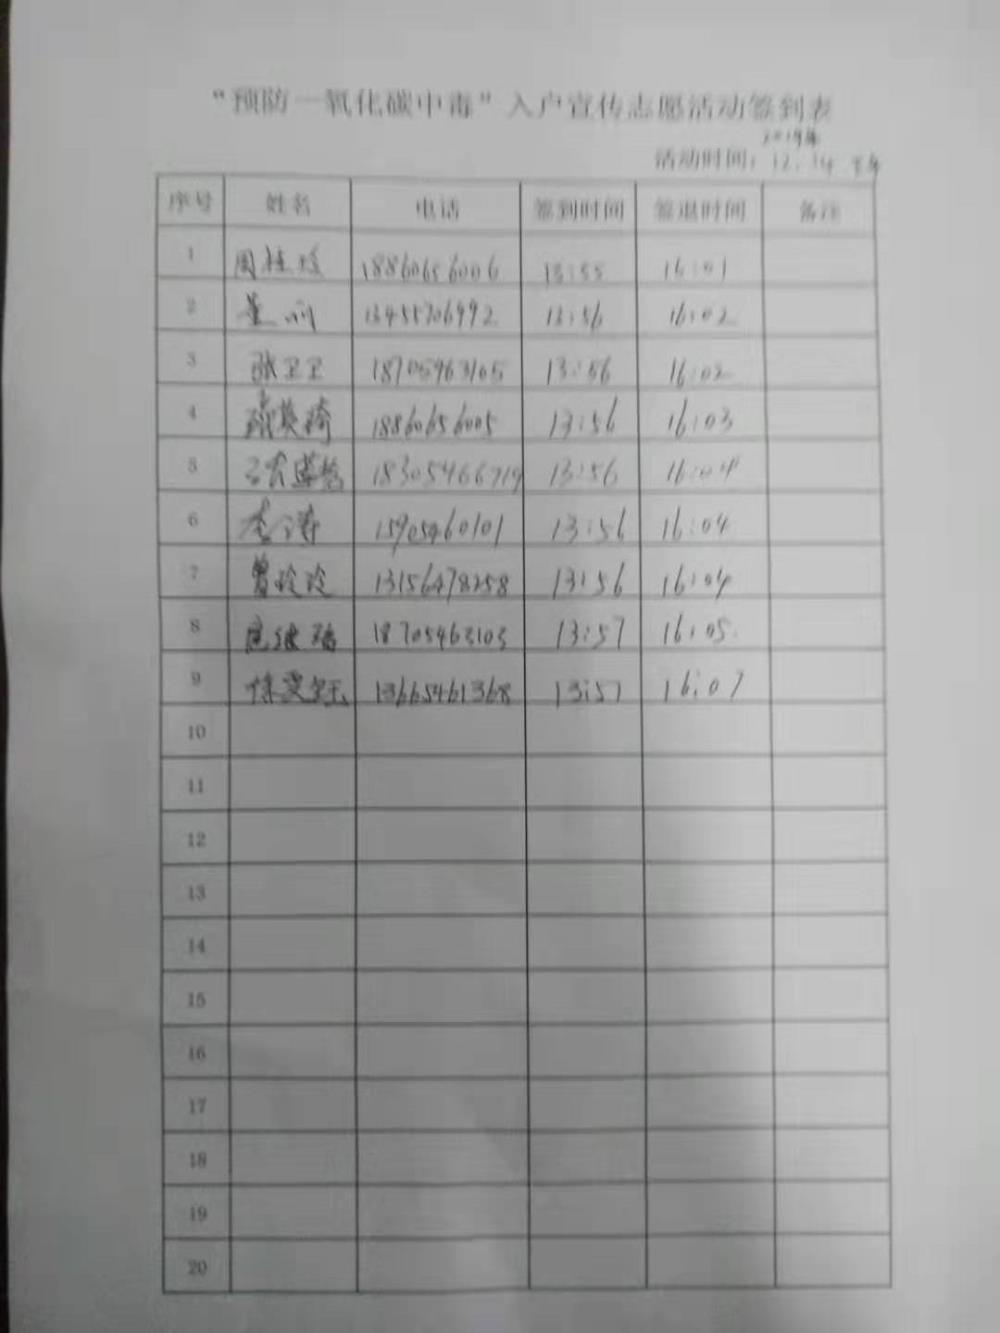 “预防一氧化碳中毒”入户宣传志愿活动签到表
2019年
活动时间：12.14 下午
序号 姓名 电话 签到时间 签退时间 备注
1 周桂玲 18860656006 13:55 16:01
2 13455706992 13:56 16:02
3 张卫卫 18705463105 13:56 16:02
4 18860656005 13:56 16:03
5 18305466719 13:56 16:04
6 李涛 15905460101 13:56 16:04
7 曾玲玲 13156478258 13:56 16:04
8 18705463103 13:57 16:05
9 13665461368 13:57 16:07
10
11
12
13
14
15
16
17
18
19
20